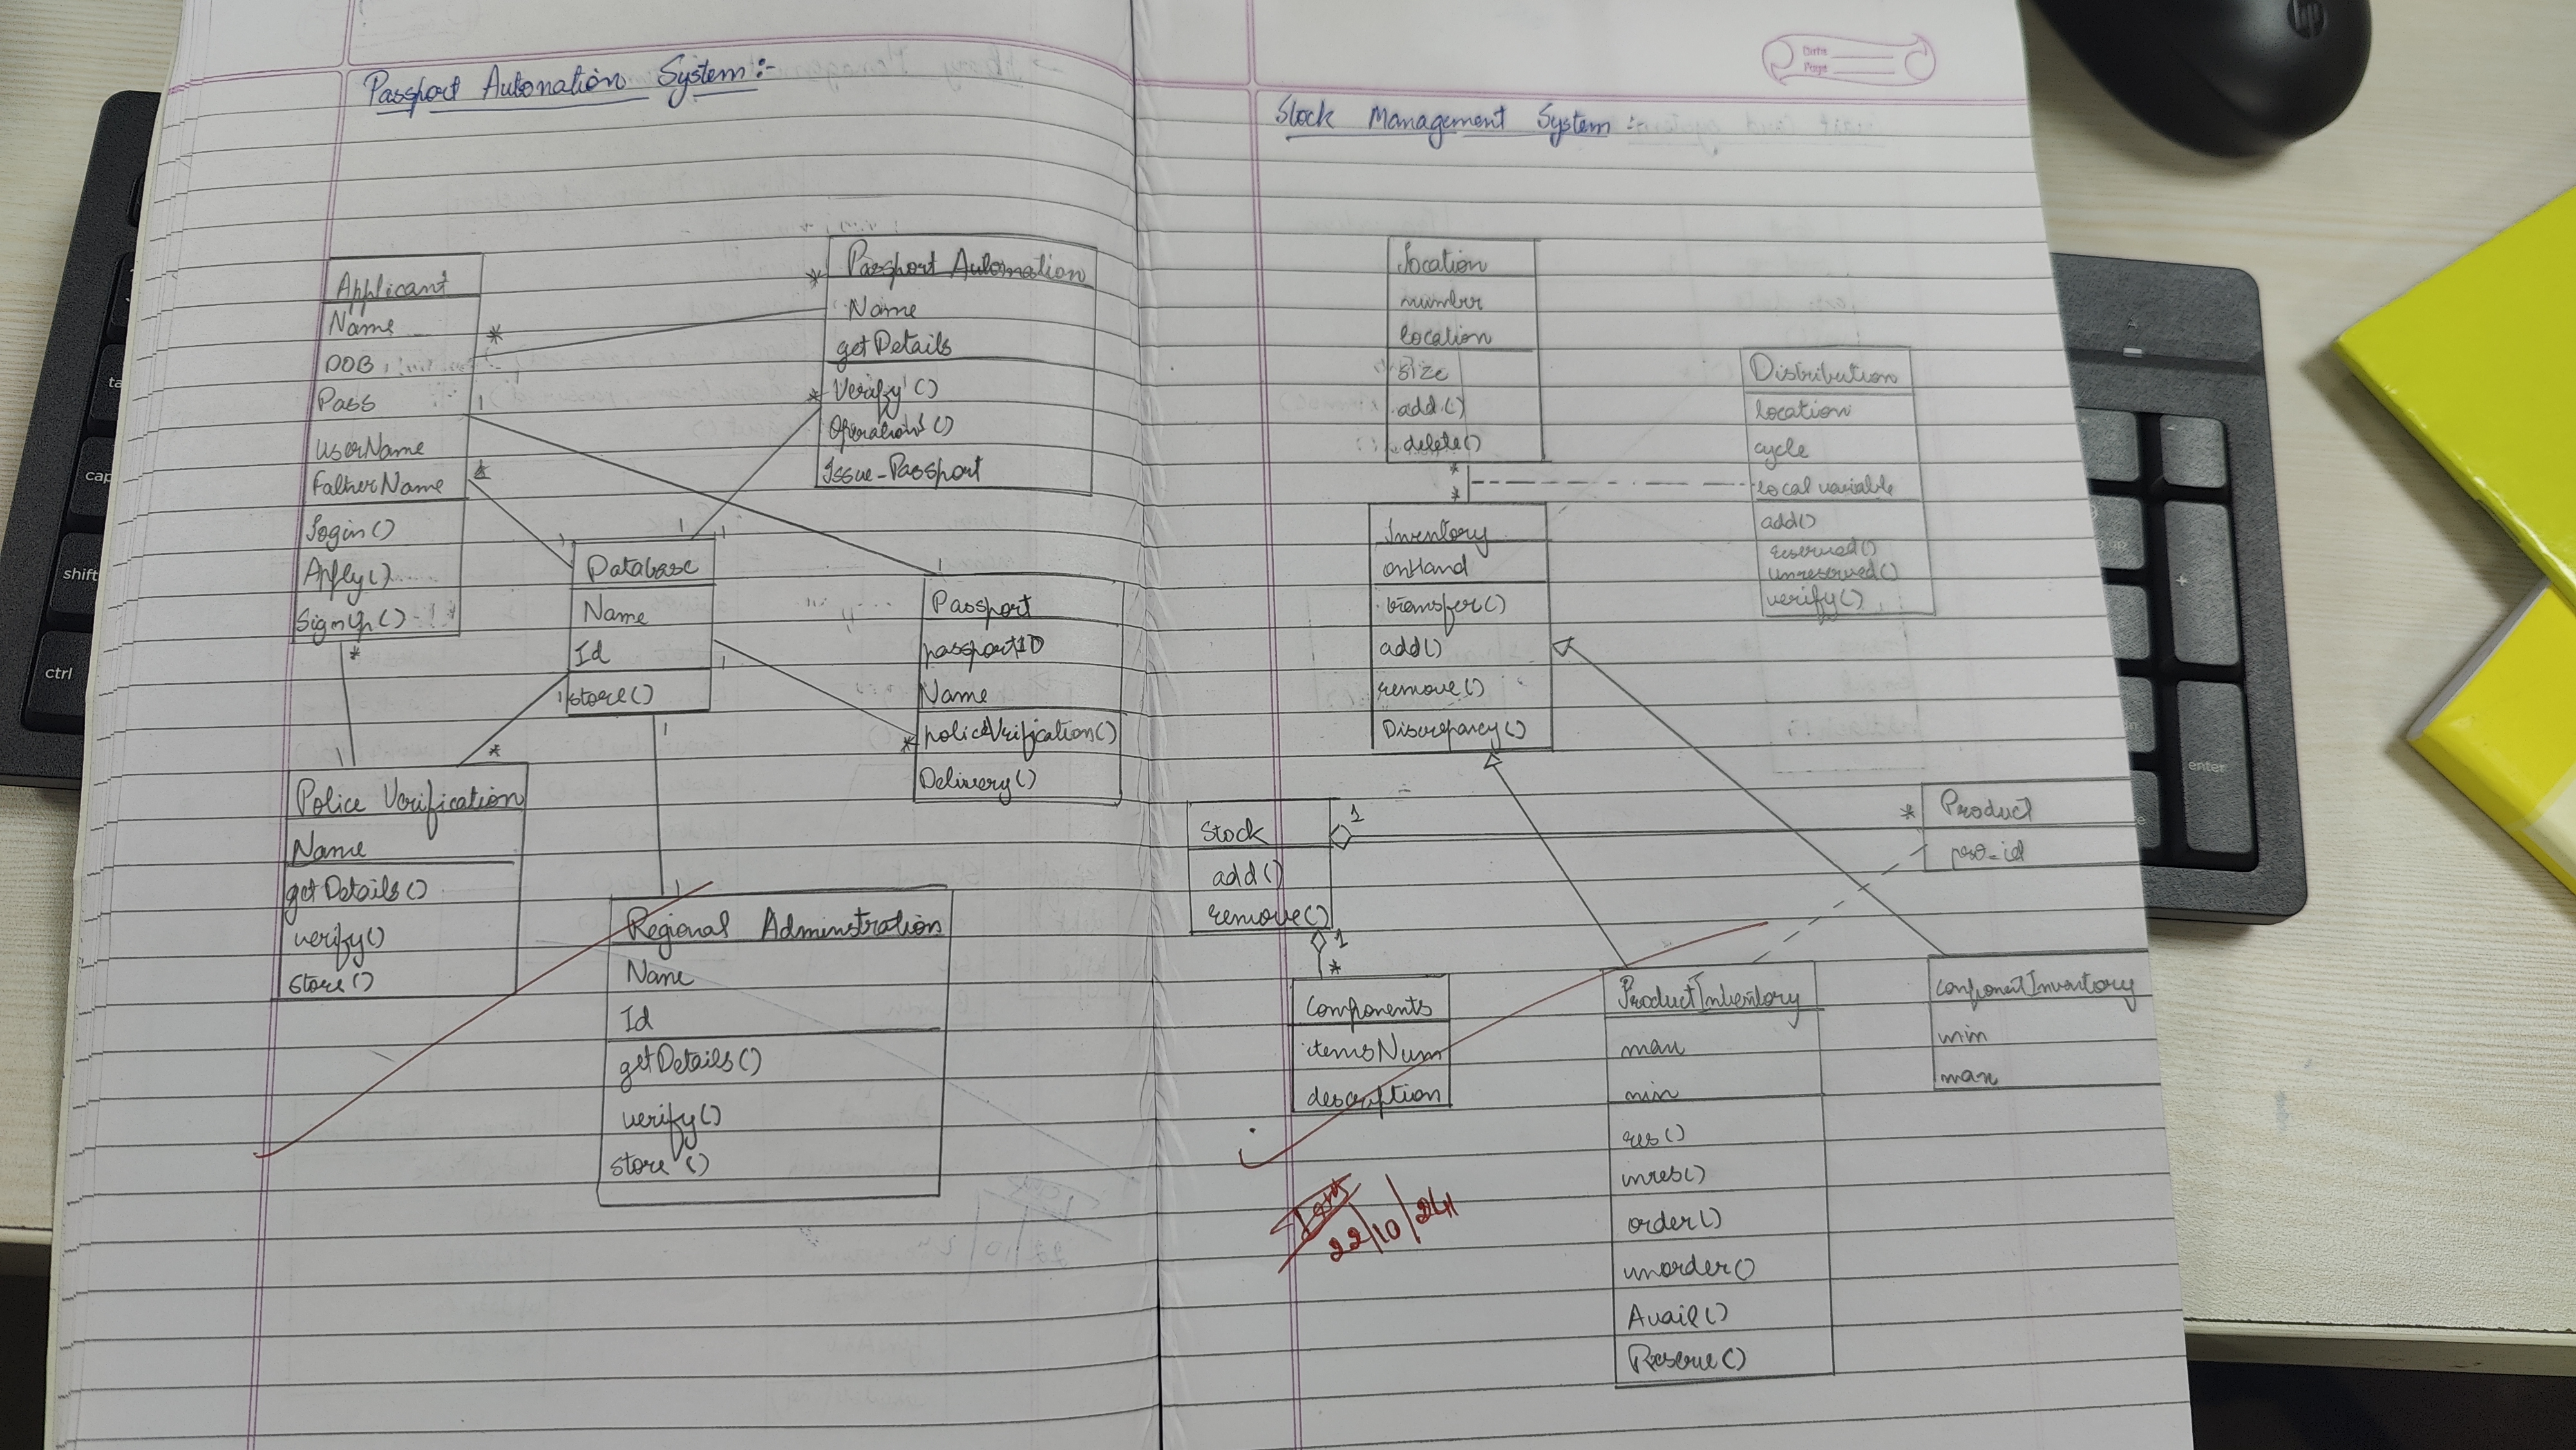 Passport Automation System:-
Applicant
Name
DOB
Pass
userName
FatherName
login()
Apply()
SignUp()
*
1
*
Passport Automation
Name
getDetails
Verify()
Operations()
Issue-Passport
*
*
1
1
1
Database
Name
Id
store()
1
1
1
1
Passport
passportID
Name
policeVerification()
Delivery()
*
*
1
*
Police Verification
Name
getDetails()
verify()
store()
1
Regional Adminstration
Name
Id
getDetails()
verify()
store()
Date
Page
Stock Management System:-
location
number
location
size
add()
delete()
*
*
Distribution
location
cycle
local variable
add()
reserved()
unreserved()
verify()
Inventory
onHand
transfer()
add()
remove()
Discrepancy()
Stock
add()
remove()
1
*
Product
pro-id
1
*
Components
itemsNum
description
ProductInventory
max
min
res()
inres()
order()
unorder()
Avail()
Reserve()
componentInventory
min
max
22/10/24
hp
ctrl
shift
cap
ta
enter
+
-